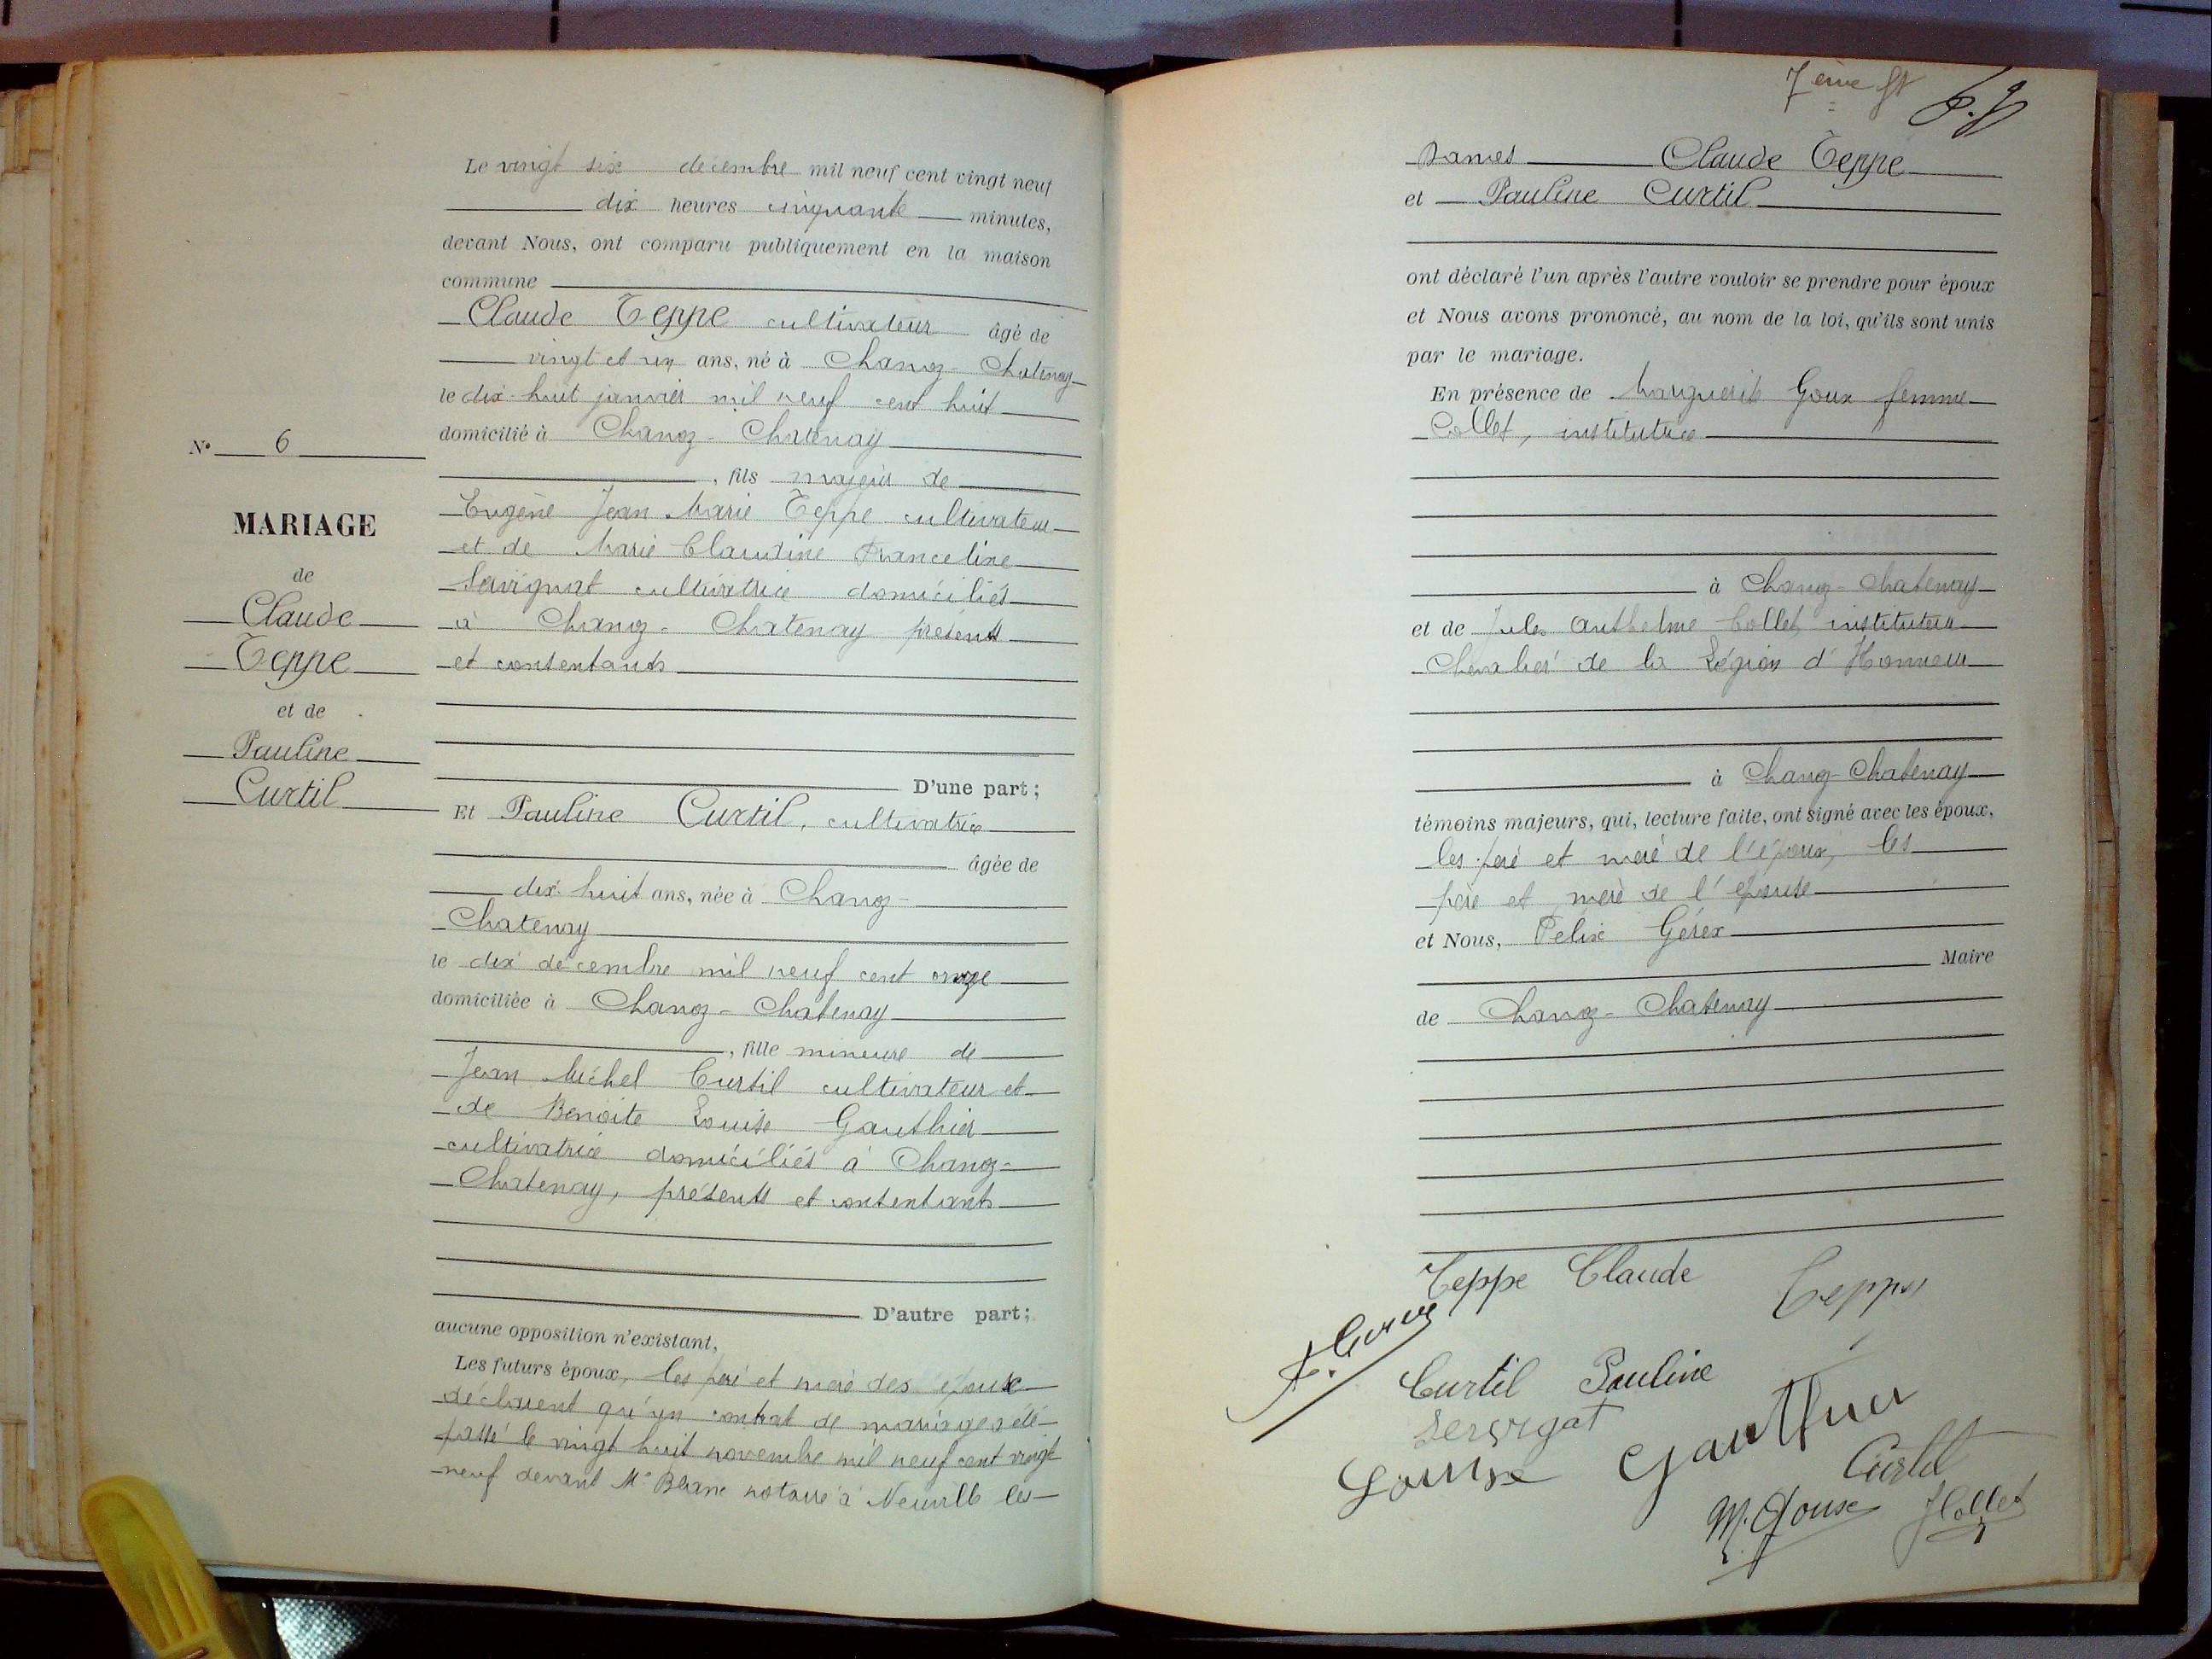 Le vingt six decembre mil neuf cent vingt neuf
dix heures cinquante minutes,
devant Nous, ont comparu publiquement en la maison
commune
Claude Teppe cultivateur âgé de
vingt et un ans, né à Chanoz-Chatenay
le dix-huit janvier mil neuf cent huit
domicilié à Chanoz-Chatenay
, fils majeur de
Eugène Jean Marie Teppe cultivateur
et de Marie Claudine Franceline
cultivatrice domiciliés
à Chanoz-Chatenay présents
et consentants
D'une part;
Et Pauline Curtil, cultivatrice
âgée de
dix-huit ans, née à Chanoz-
Chatenay
le dix décembre mil neuf cent onze
domiciliée à Chanoz-Chatenay
, fille mineure de
Jean Michel Curtil cultivateur et
de Benoite Louise Gauthier
cultivatrice domiciliés à Chanoz-
Chatenay, présents et consentants
D'autre part;
aucune opposition n'existant,
Les futurs époux, les père et mère des
déclarent qu'un contrat de mariage a été
passé le vingt huit novembre mil neuf cent vingt
neuf devant Me notaire à Neuville les
N° 6
MARIAGE
de
Claude
Teppe
et de
Pauline
Curtil
7ème ft
Dames Claude Teppe
et Pauline Curtil
ont déclaré l'un après l'autre vouloir se prendre pour époux
et Nous avons prononcé, au nom de la loi, qu'ils sont unis
par le mariage.
En présence de Marguerite Goux femme
Collet, institutrice
à Chanoz-Chatenay
et de Jules Anthelme Collet, instituteur
Chevalier de la Légion d'Honneur
à Chanoz-Chatenay
témoins majeurs, qui, lecture faite, ont signé avec les époux,
les père et mère de l'époux, les
père et mère de l'épouse
et Nous, Félix
Maire
de Chanoz-Chatenay
Teppe Claude Teppe
Curtil Pauline
Louise Gauthier
Curtil
M. Goux JCollet